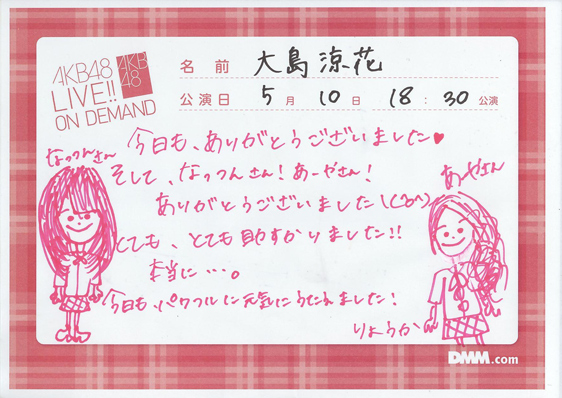 AKB48
LIVE!!
ON DEMAND
AKB
48
名前 大島涼花
公演日 5月10日 18:30公演
今日も、ありがとうございました♥
なっつんさん
そして、なっつんさん!あーやさん!
あやさん
ありがとうございました
とても、とても助すかりました!!
本当に…。
今日も、パワフルに元気にうたえました!
りょうか
DMM.com